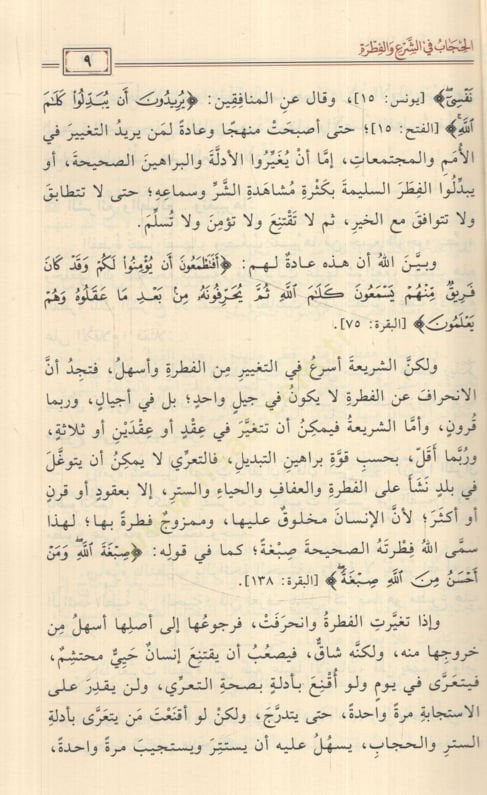 الحِجَابُ في الشَّرْعِ وَالفِطْرَةِ
٩
نَفْسِيٓۖ﴾ [يونس: ١٥]، وقال عنِ المنافِقِين: ﴿يُرِيدُونَ أَن يُبَدِّلُوا۟ كَلَٰمَ
ٱللَّهِۚ﴾ [الفتح: ١٥]؛ حتى أصبحَتْ منهجًا وعادةً لمَن يريدُ التغييرَ في
الأُمَمِ والمجتمعاتِ، إمَّا أنْ يُغَيِّرُوا الأدلَّةَ والبراهينَ الصحيحةَ، أو
يبدِّلُوا الفِطَرَ السليمةَ بكَثْرةِ مُشاهَدةِ الشَّرِّ وسماعِهِ؛ حتى لا تتطابقَ
ولا تتوافقَ مع الخيرِ، ثم لا تَقْتنِعَ ولا تؤمِنَ ولا تُسلِّمَ.
وبيَّنَ اللهُ أن هذه عادةٌ لهم: ﴿أَفَتَطْمَعُونَ أَن يُؤْمِنُوا۟ لَكُمْ وَقَدْ كَانَ
فَرِيقٌ مِّنْهُمْ يَسْمَعُونَ كَلَٰمَ ٱللَّهِ ثُمَّ يُحَرِّفُونَهُۥ مِنۢ بَعْدِ مَا عَقَلُوهُ وَهُمْ
يَعْلَمُونَ﴾ [البقرة: ٧٥].
ولكنَّ الشريعةَ أسرعُ في التغييرِ مِن الفطرةِ وأسهلُ، فتجدُ أنَّ
الانحرافَ عن الفطرةِ لا يكونُ في جيلٍ واحدٍ؛ بل في أجيالٍ، وربما
قُرونٍ، وأمَّا الشريعةُ فيمكِنُ أن تتغيَّرَ في عِقْدٍ أو عِقْدَيْنِ أو ثلاثةٍ،
ورُبَّما أقَلَّ، بحسبِ قوَّةِ براهينِ التبديلِ، فالتعرِّي لا يمكنُ أن يتوغَّلَ
في بلدٍ نَشَأَ على الفطرةِ والعفافِ والحياءِ والسترِ، إلا بعقودٍ أو قرنٍ
أو أكثَرَ؛ لأنَّ الإنسانَ مخلوقٌ عليها، وممزوجٌ فطرةً بها؛ لهذا
سمَّى اللهُ فِطْرتَهُ الصحيحةَ صِبْغةً؛ كما في قولِه: ﴿صِبْغَةَ ٱللَّهِۖ وَمَنْ
أَحْسَنُ مِنَ ٱللَّهِ صِبْغَةًۖ﴾ [البقرة: ١٣٨].
وإذا تغيَّرتِ الفطرةُ وانحرفَتْ، فرجوعُها إلى أصلِها أسهلُ مِن
خروجِها منه، ولكنَّه شاقٌّ، فيصعُبُ أن يقتنِعَ إنسانٌ حَيِيٌّ محتشِمٌ،
فيتعَرَّى في يومٍ ولو أُقْنِعَ بأدلةٍ بصحةِ التعرِّي، ولن يقدِرَ على
الاستجابةِ مرةً واحدةً، حتى يتدرَّجَ، ولكنْ لو أقنَعْتَ مَن يتعَرَّى بأدلةِ
السترِ والحجابِ، يسهُلُ عليه أن يستتِرَ ويستجيبَ مرةً واحدةً،